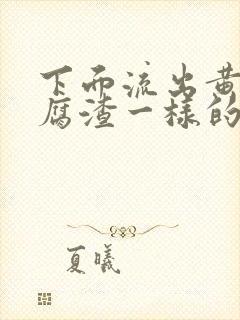 下面流出黄
腐渣一样的
夏曦